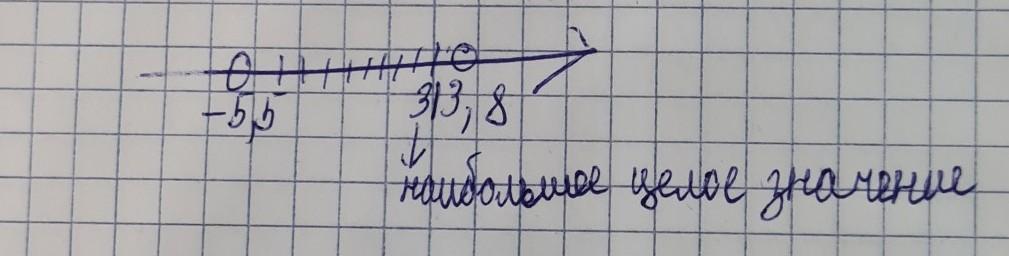 -5,5 3 3,8
наибольшее целое значение